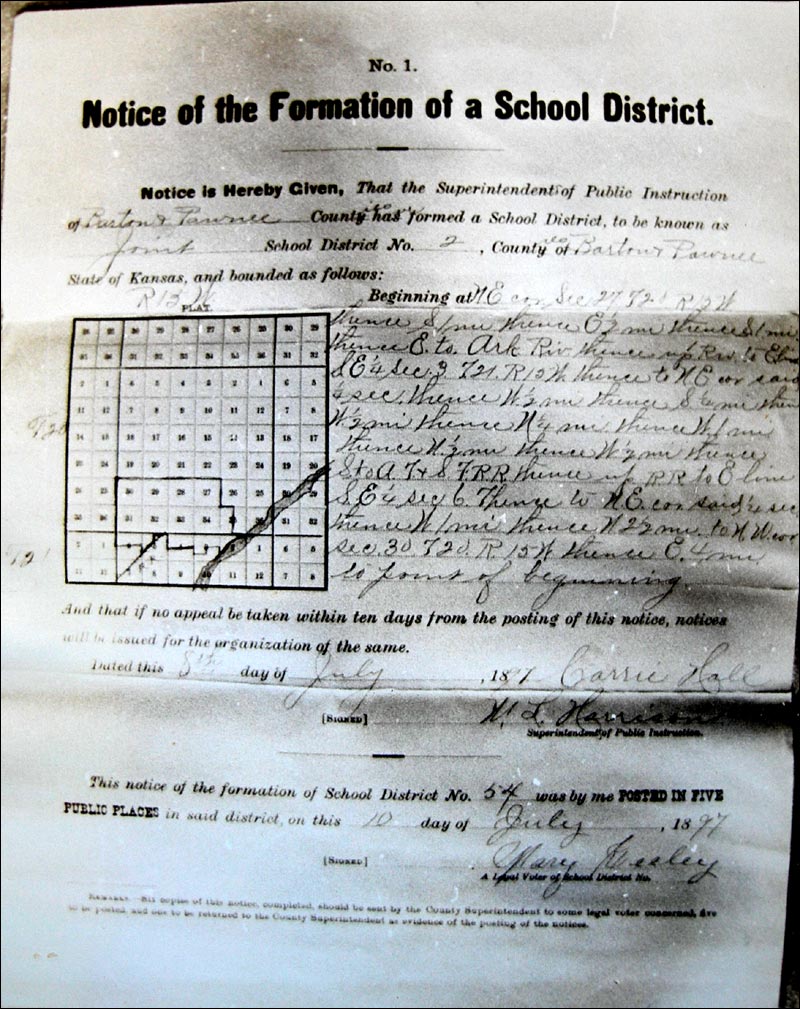 No. 1.
Notice of the Formation of a School District.
Notice is Hereby Given, That the Superintendents of Public Instruction
of Barton & Pawnee County has formed a School District, to be known as
Joint School District No. 2, County of Barton & Pawnee
State of Kansas, and bounded as follows:
R 15 W Beginning at N E cor Sec 27 T 20 R 15 W
PLAT.
thence S 1 mi thence E ½ mi thence S 1 mi
thence E. to Ark Riv thence up Riv to E line
S E ¼ Sec. 3 T 21. R 15 W thence to N E cor said
¼ sec, thence W ½ mi thence S ¼ mi then
W ½ mi thence N ¼ mi thence W 1 mi
thence N ½ mi thence W ½ mi thence
S to A. T & S. F. RR thence up RR to E line
S. E ¼ sec 6. Thence to N E. cor said ¼ sec
thence W 1 mi thence N 2½ mi to N W cor
sec. 30 T 20. R. 15 W thence E. 4 mi
to point of beginning.
T 20
T 21
And that if no appeal be taken within ten days from the posting of this notice, notices
will be issued for the organization of the same.
Dated this 8th day of July, 1897 Carrie Hall
[SIGNED] W. L. Harrison
Superintendents of Public Instruction.
This notice of the formation of School District No. 54 was by me POSTED IN FIVE
PUBLIC PLACES in said district, on this 10 day of July, 1897
[SIGNED] Mary
A Legal Voter of School District No.
REMARKS.—Six copies of this notice, completed, should be sent by the County Superintendent to some legal voter concerned, five
to be posted, and one to be returned to the County Superintendent as evidence of the posting of the notices.